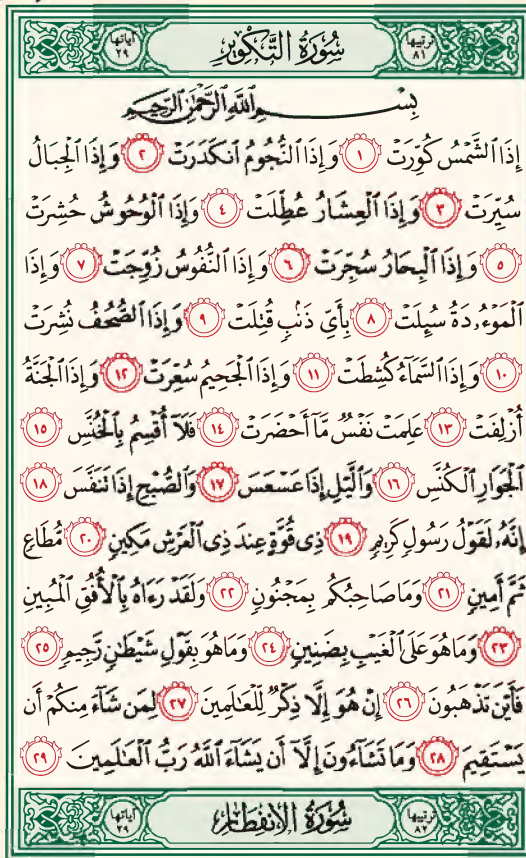 ترتيبها ٨١ سُورَةُ التَّكْوِيرِ آياتها ٢٩
بِسْمِ اللَّهِ الرَّحْمَٰنِ الرَّحِيمِ
إِذَا الشَّمْسُ كُوِّرَتْ ١ وَإِذَا النُّجُومُ انْكَدَرَتْ ٢ وَإِذَا الْجِبَالُ
سُيِّرَتْ ٣ وَإِذَا الْعِشَارُ عُطِّلَتْ ٤ وَإِذَا الْوُحُوشُ حُشِرَتْ
٥ وَإِذَا الْبِحَارُ سُجِّرَتْ ٦ وَإِذَا النُّفُوسُ زُوِّجَتْ ٧ وَإِذَا
الْمَوْءُۥدَةُ سُئِلَتْ ٨ بِأَيِّ ذَنْبٍ قُتِلَتْ ٩ وَإِذَا الصُّحُفُ نُشِرَتْ
١٠ وَإِذَا السَّمَآءُ كُشِطَتْ ١١ وَإِذَا الْجَحِيمُ سُعِّرَتْ ١٢ وَإِذَا الْجَنَّةُ
أُزْلِفَتْ ١٣ عَلِمَتْ نَفْسٌ مَّآ أَحْضَرَتْ ١٤ فَلَآ أُقْسِمُ بِالْخُنَّسِ ١٥
الْجَوَارِ الْكُنَّسِ ١٦ وَالَّيْلِ إِذَا عَسْعَسَ ١٧ وَالصُّبْحِ إِذَا تَنَفَّسَ ١٨
إِنَّهُۥ لَقَوْلُ رَسُولٍ كَرِيمٍ ١٩ ذِى قُوَّةٍ عِندَ ذِى الْعَرْشِ مَكِينٍ ٢٠ مُّطَاعٍ
ثَمَّ أَمِينٍ ٢١ وَمَا صَاحِبُكُم بِمَجْنُونٍ ٢٢ وَلَقَدْ رَءَاهُ بِالْأُفُقِ الْمُبِينِ
٢٣ وَمَا هُوَ عَلَى الْغَيْبِ بِضَنِينٍ ٢٤ وَمَا هُوَ بِقَوْلِ شَيْطَٰنٍ رَّجِيمٍ ٢٥
فَأَيْنَ تَذْهَبُونَ ٢٦ إِنْ هُوَ إِلَّا ذِكْرٌ لِّلْعَٰلَمِينَ ٢٧ لِمَن شَآءَ مِنكُمْ أَن
يَسْتَقِيمَ ٢٨ وَمَا تَشَآءُونَ إِلَّآ أَن يَشَآءَ اللَّهُ رَبُّ الْعَٰلَمِينَ ٢٩
ترتيبها ٨٢ سُورَةُ الِانْفِطَارِ آياتها ١٩